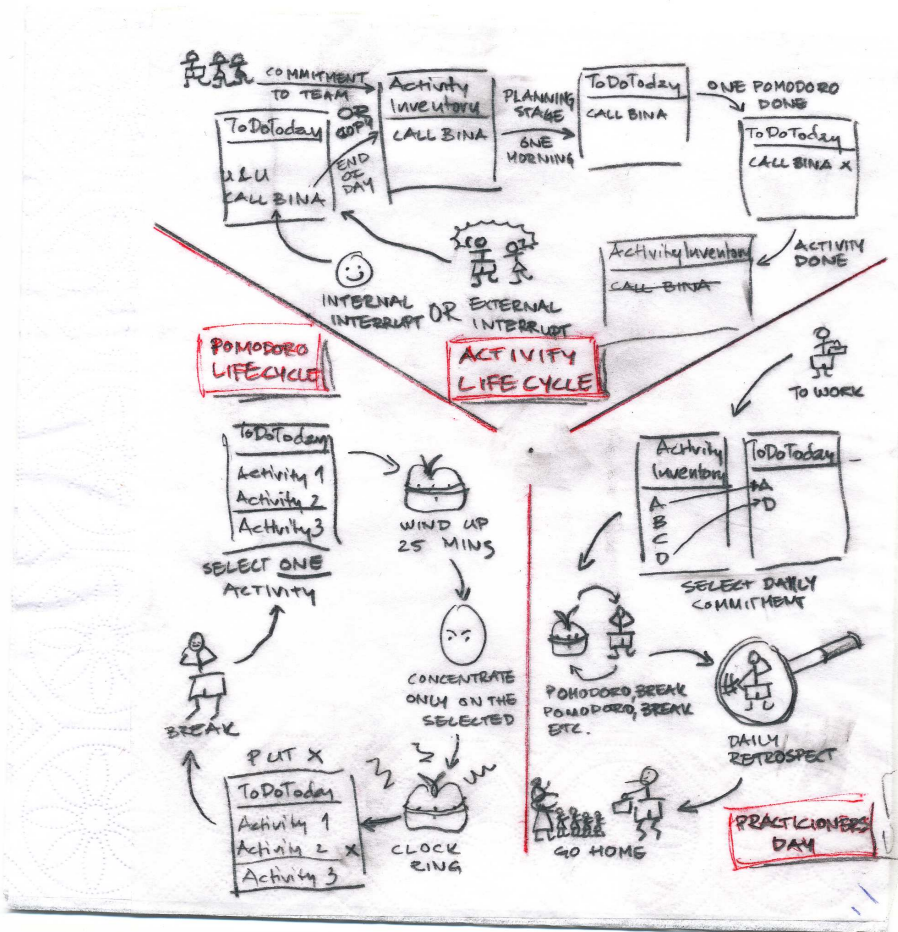 COMMITMENT
TO TEAM
Activity
Inventory
CALL BINA
PLANNING
STAGE
ONE
MORNING
ToDoToday
CALL BINA
ONE POMODORO
DONE
ToDoToday
CALL BINA X
ACTIVITY
DONE
Activity Inventory
CALL BINA
ToDoToday
U & U
CALL BINA
OR
COPY
END
OF
DAY
INTERNAL
INTERRUPT
OR
EXTERNAL
INTERRUPT
ACTIVITY
LIFE CYCLE
POMODORO
LIFE CYCLE
ToDoToday
Activity 1
Activity 2
Activity 3
SELECT ONE
ACTIVITY
WIND UP
25 MINS
CONCENTRATE
ONLY ON THE
SELECTED
CLOCK
RING
PUT X
ToDoToday
Activity 1
Activity 2 X
Activity 3
BREAK
TO WORK
Activity
Inventory
A
B
C
D
ToDoToday
A
D
SELECT DAILY
COMMITMENT
POMODORO, BREAK
POMODORO, BREAK
ETC.
DAILY
RETROSPECT
GO HOME
PRACTICIONERS
DAY